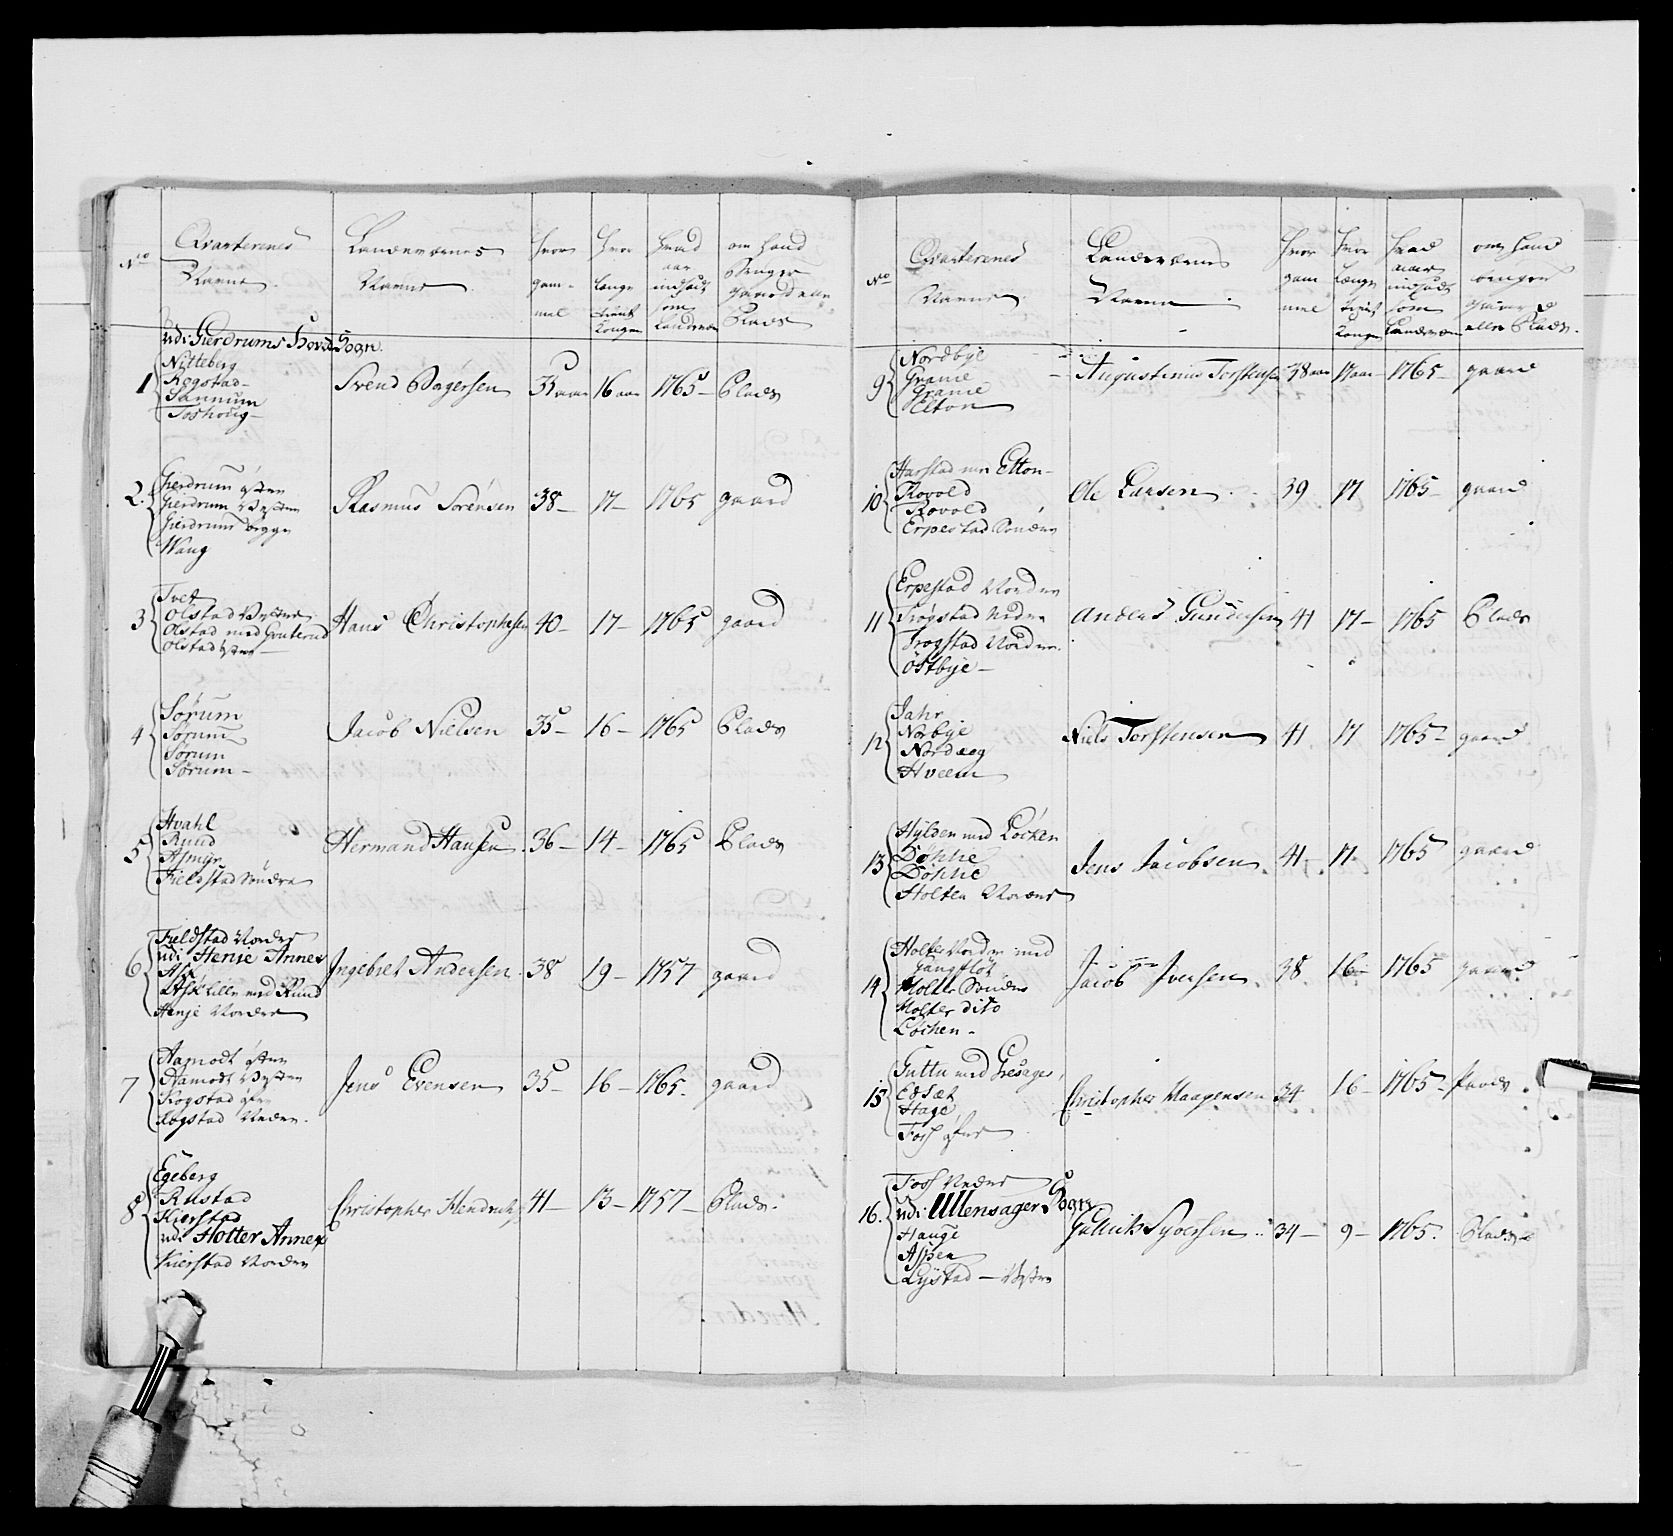 No
Qvarterenes
Navne.
Landeværnes
Navne
hvor
gam-
mel
hvor
længe
tient
Kongen
hvad
aar
indsadt
som
Landeværn
om hand
Pladz
udi Gierdrums Hoved Sogn.
1
Nitteberg
Rogstad
Tannum
Toshoug
Svend Bagersen 35 aar 16 aar 1765 Plads
2.
Gierdrum østre
Gierdrum Vestre
Gierdrum bygge
Wang
Rasmus Sørensen 38 17 1765 gaard
3
Tvet
Olstad Vestre
Olstad med
Olstad østre
Hans Christophersen 40 17 1765 gaard
4
Sørum
Sørum
Sørum
Sørum
Jacob Nielsen 35 16 1765 Plads
5
Hvahl
Ruud
Asmyr
Fieldstad Søndre
Hermand Hansen 36 14 1765 Plads
6
Fieldstad Nordre
udi Henie Annex
Ask
Ask Lille med Ruud
Henje Nordre
Ingebret Andersen 38 19 1757 gaard
7
Aamodt østre
Aamodt Vestre
Rogstad øvre
Rogstad Nedre
Jens Evensen 35 16 1765 gaard
8
Egeberg
Rustad
Kierstad
udi Holter Annex
Kierstad Nordre
Christopher Hendrichs 41 13 1757 Plads
No
Qvarterenes
Navne
Landeværnes
Navne
hvor
gam
mel
hvor
længe
tient
Konge
hvad
aar
indsadt
som
Landeværn
om hand
gaard
eller Plads.
9
Nordbye
Granie
Granie
Elton
Augustinus Torstensen 38 aar 17 aar 1765 gaard
10
Harstad med Elton
Rovold
Rovold
Erpestad Søndre
Ole Larsen 39 17 1765 gaard
11
Erpestad Nordre
Trøgstad Nedre
Trogstad Nordre
Østbye
Anders Gundersen 41 17 1765 Plads
12
Jahr
Norbye
Hveem
Niels Torstensen 41 17 1765 gaard
13
Hylden med Løcken
Døhlie
Døhlie
Holten Nordre
Jens Jacobsen 41 17 1765 gaard
14
Holter Nordre med
Gangfløt
Holter Søndre
Holter dito
Løchen
Jacob Iversen 38 16 1765 gaard
15
Tuttu med
Edset
Hage
Foss øfre
Christopher Haagensen 34 16 1765 Plads
16.
Foss Nedre
udi Ullensager Sogn
Hauge
Aspen
Lystad Vestre
Gulbrand Syversen 34 9 1765. Plads